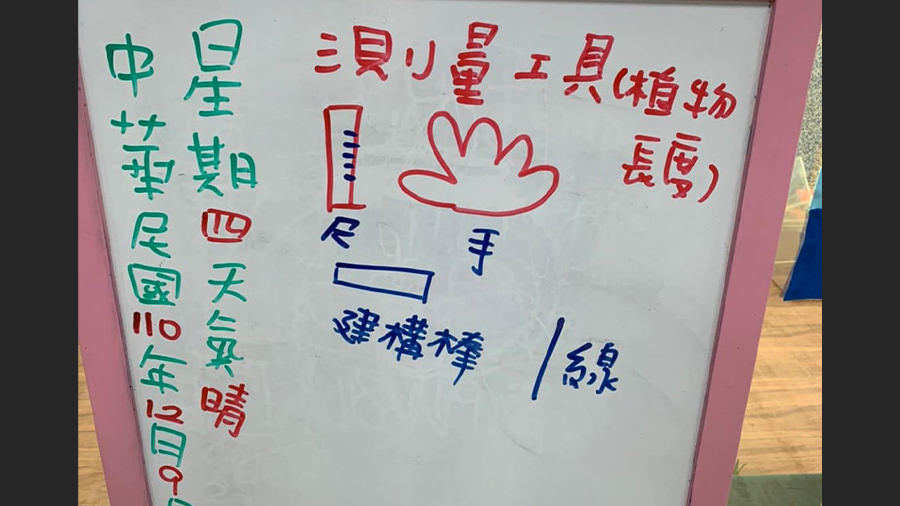 中華民國110年12月9日
星期四天氣晴
測量工具(植物
長度)
尺
手
建構棒
線